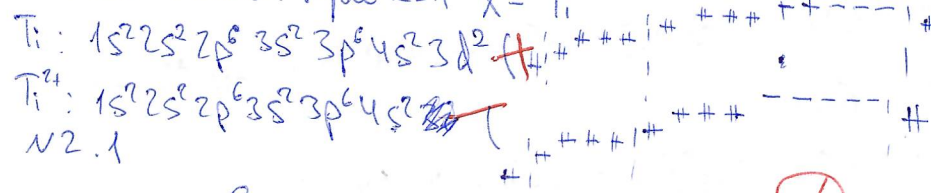 Ti: 1s²2s²2p⁶3s²3p⁶4s²3d²
Ti²⁺: 1s²2s²2p⁶3s²3p⁶4s²
N2.1